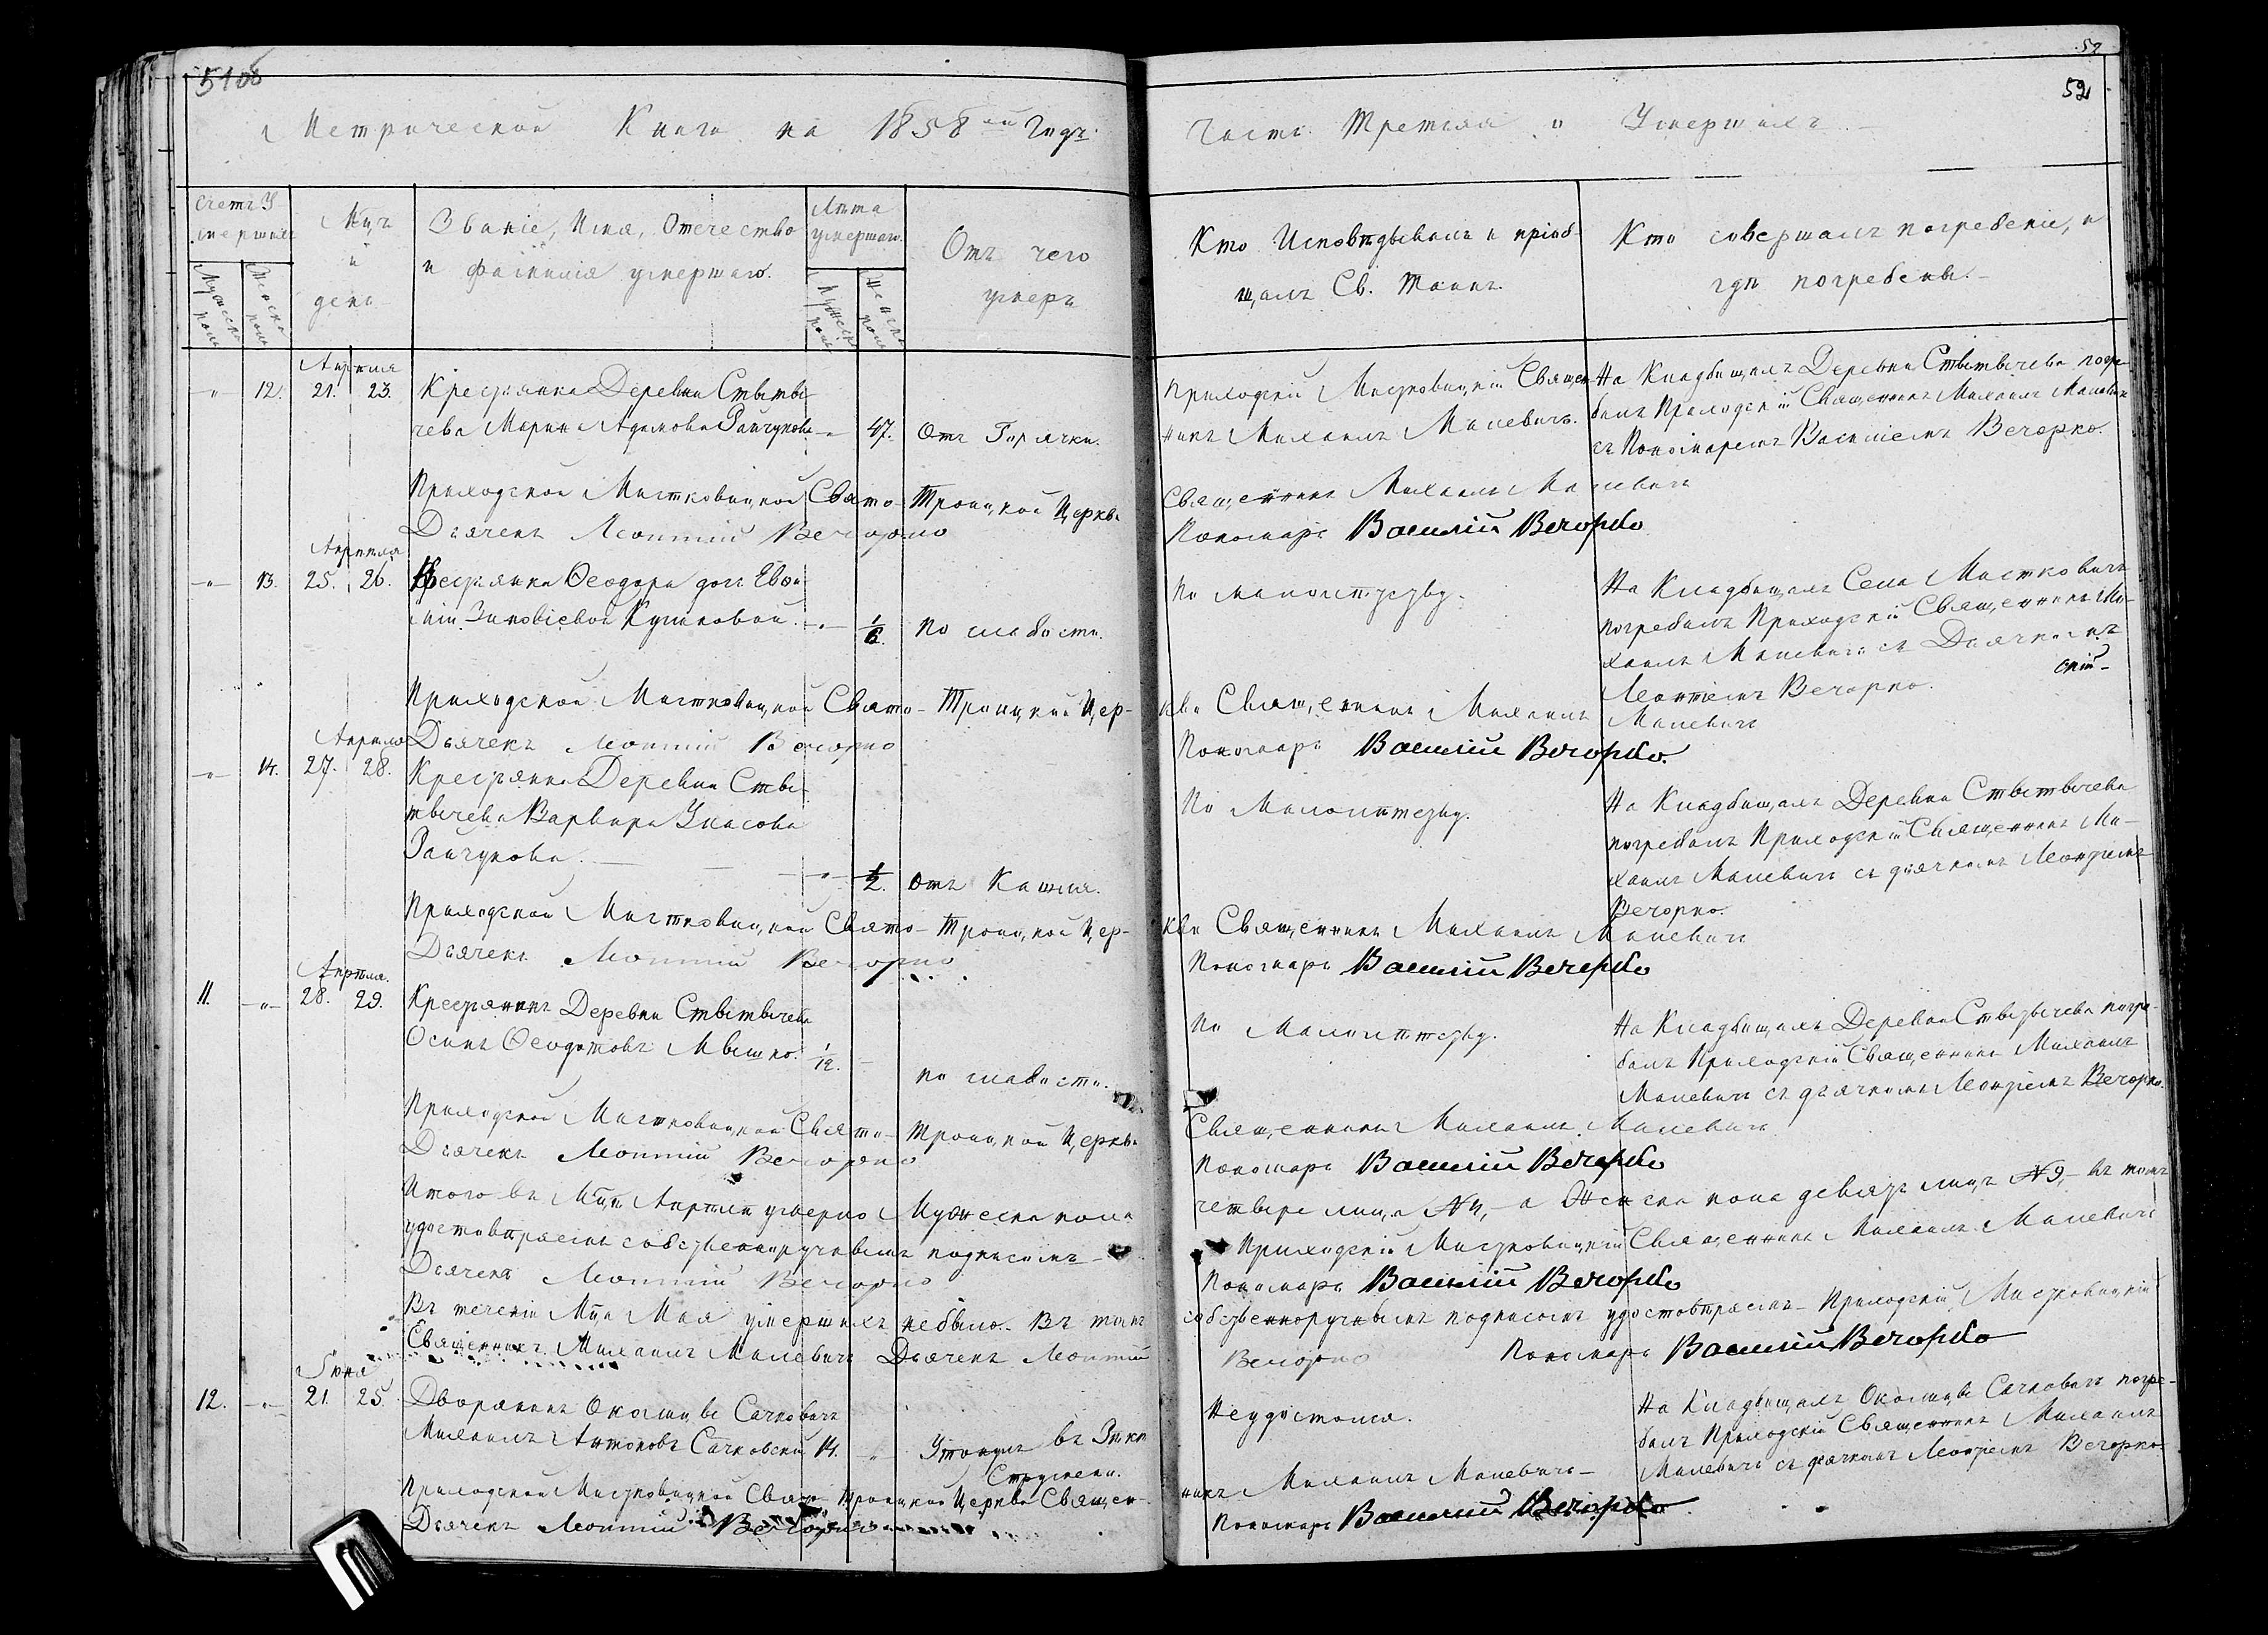 52
52
Метрической Книги на 1858 ой Годъ.
Часть Третія о Умершихъ.
Счетъ У
мершихъ
Мужеска
полъ
Женска
полъ
Мцъ
и
день
Званіе, Имя, Отечество
и фамилія умершаго.
Лѣта
умершаго.
Мужеск.
полъ
Женска
полъ
Отъ чего
умеръ
Кто Исповѣдывалъ и пріоб-
щалъ Св. Таинъ.
Кто совершалъ погребеніе, и
гдѣ погребены.
Апрѣля
12. 21. 23. Крестьянка Деревни Стыты-
чева Марина Адамова Зайчукова 47. Отъ Горячки.
Приходскій Мистковицкій Священ-
никъ Михаилъ Малевичъ.
На Кладбищахъ Деревни Стытычева погре-
балъ Приходскій Священникъ Михаилъ Малевичъ
съ Пономаремъ Василіемъ Вечорко.
Приходской Мистковицкой Свято-Троицкой Церкви
Священникъ Михаилъ Малевичъ
Дьячекъ Леонтій Вечорко
Пономарь Василій Вечорко
Апрѣля
13. 25. 26. Крестьянка Ѳеодора дочь
Зиновіевой 1/6. По слабости.
По малолѣтству.
На Кладбищахъ Села Мистковичъ
погребалъ Приходскій Священникъ Ми-
хаилъ Малевичъ съ Дьячкомъ
Леонтіемъ Вечорко.
Приходской Мистковицкой Свято-Троицкой Цер-
кви Священникъ Михаилъ Малевичъ
Дьячекъ Леонтій Вечорко
Пономарь Василій Вечорко.
Апрѣля
14. 27. 28. Крестьянка Деревни Сты-
тычева Варвара Уласова
Зайчукова. 1/2. отъ Кашля.
По Малолѣтству.
На Кладбищахъ Деревни Стытычева
погребалъ Приходскій Священникъ Ми-
хаилъ Малевичъ съ дьячкомъ Леонтіемъ
Вечорко.
Приходской Мистковицкой Свято-Троицкой Цер-
кви Священникъ Михаилъ Малевичъ
Дьячекъ Леонтій Вечорко
Пономарь Василій Вечорко
Апрѣля.
11. 28. 29. Крестьянинъ Деревни Стытычева
Осипъ Ѳеодотовъ Мышко. 1/12. по слабости.
По Малолѣтству.
На Кладбищахъ Деревни Стытычева погре-
балъ Приходскій Священникъ Михаилъ
Малевичъ съ дьячкомъ Леонтіемъ Вечорко.
Приходской Мистковицкой Свято-Троицкой Церкви
Священникъ Михаилъ Малевичъ
Дьячекъ Леонтій Вечорко
Пономарь Василій Вечорко
Итого въ Мцѣ Апрѣлѣ умерло Мужеска пола
четыре лица №4, а Женска пола девять лицъ №9, въ томъ
удостовѣряемъ собственоручнымъ подписомъ
Приходскій Мистковицкій Священникъ Михаилъ Малевичъ
Дьячекъ Леонтій Вечорко
Пономарь Василій Вечорко
Въ теченіи Мца Мая умершихъ небыло. Въ томъ
собственноручнымъ подписомъ удостовѣряемъ Приходскій Мистковицкій
Священникъ Михаилъ Малевичъ Дьячекъ Леонтій
Вечорко Пономарь Василій Вечорко
Іюня
12. 21. 25. Дворянинъ Околицы Сачковичъ
Михаилъ Антоновъ Сачковскій 14. Утонулъ въ Рѣкѣ
Неудостоился.
На Кладбищахъ Околицы Сачковичъ погре-
балъ Приходскій Священникъ Михаилъ
Малевичъ съ дьячкомъ Леонтіемъ Вечорко
Приходской Мистковицкой Свято Троицкой Церкви Священ-
никъ Михаилъ Малевичъ
Дьячекъ Леонтій Вечорко
Пономарь Василій Вечорко